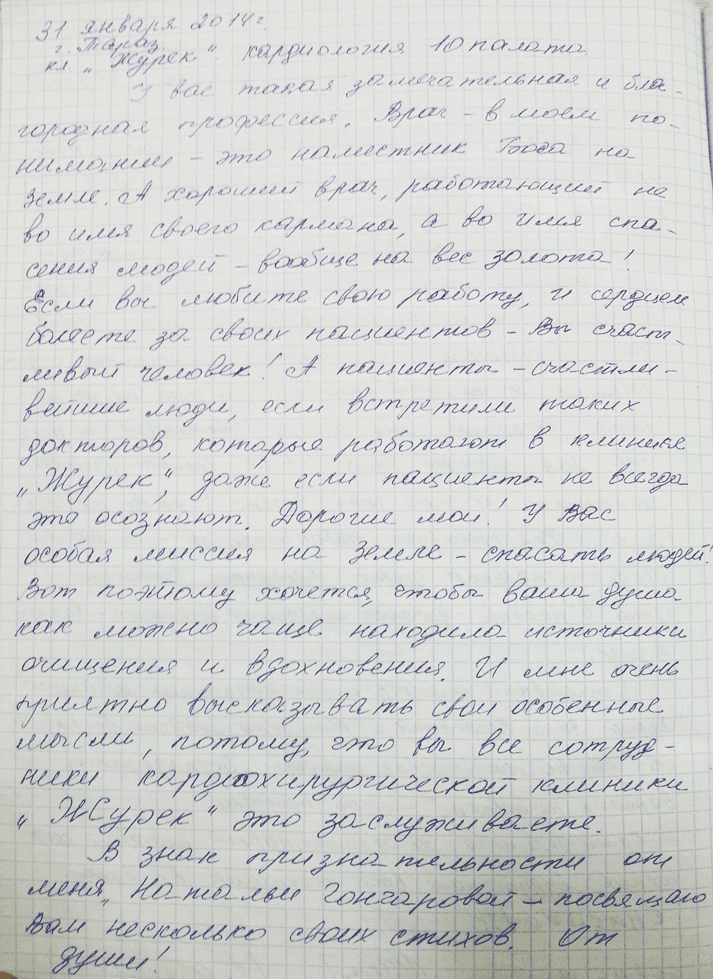 31 января 2014г.
г. Тараз
кл. „Журек“. кардиология 10 палата
У вас такая замечательная и бла-
городная профессия. Врач – в моем по-
нимании – это наместник Бога на
Земле. А хороший врач, работающий не
во имя своего кармана, а во имя спа-
сения людей – вообще на вес золота!
Если вы любите свою работу, и сердцем
болеете за своих пациентов – Вы счаст-
ливый человек! А пациенты – счастли-
вейшие люди, если встретили таких
докторов, которые работают в клинике
„Журек“, даже если пациенты не всегда
это осознают. Дорогие мои! У Вас
особая миссия на Земле – спасать людей!
Вот поэтому хочется, чтобы ваша душа
как можно чаще находила источники
очищения и вдохновения. И мне очень
приятно высказывать свои особенные
мысли, потому, что вы все сотруд-
ники кардиохирургической клиники
„Журек“ это заслуживаете.
В знак признательности от
меня, Натальи Гончаровой – посвящаю
Вам несколько своих стихов. От
души!